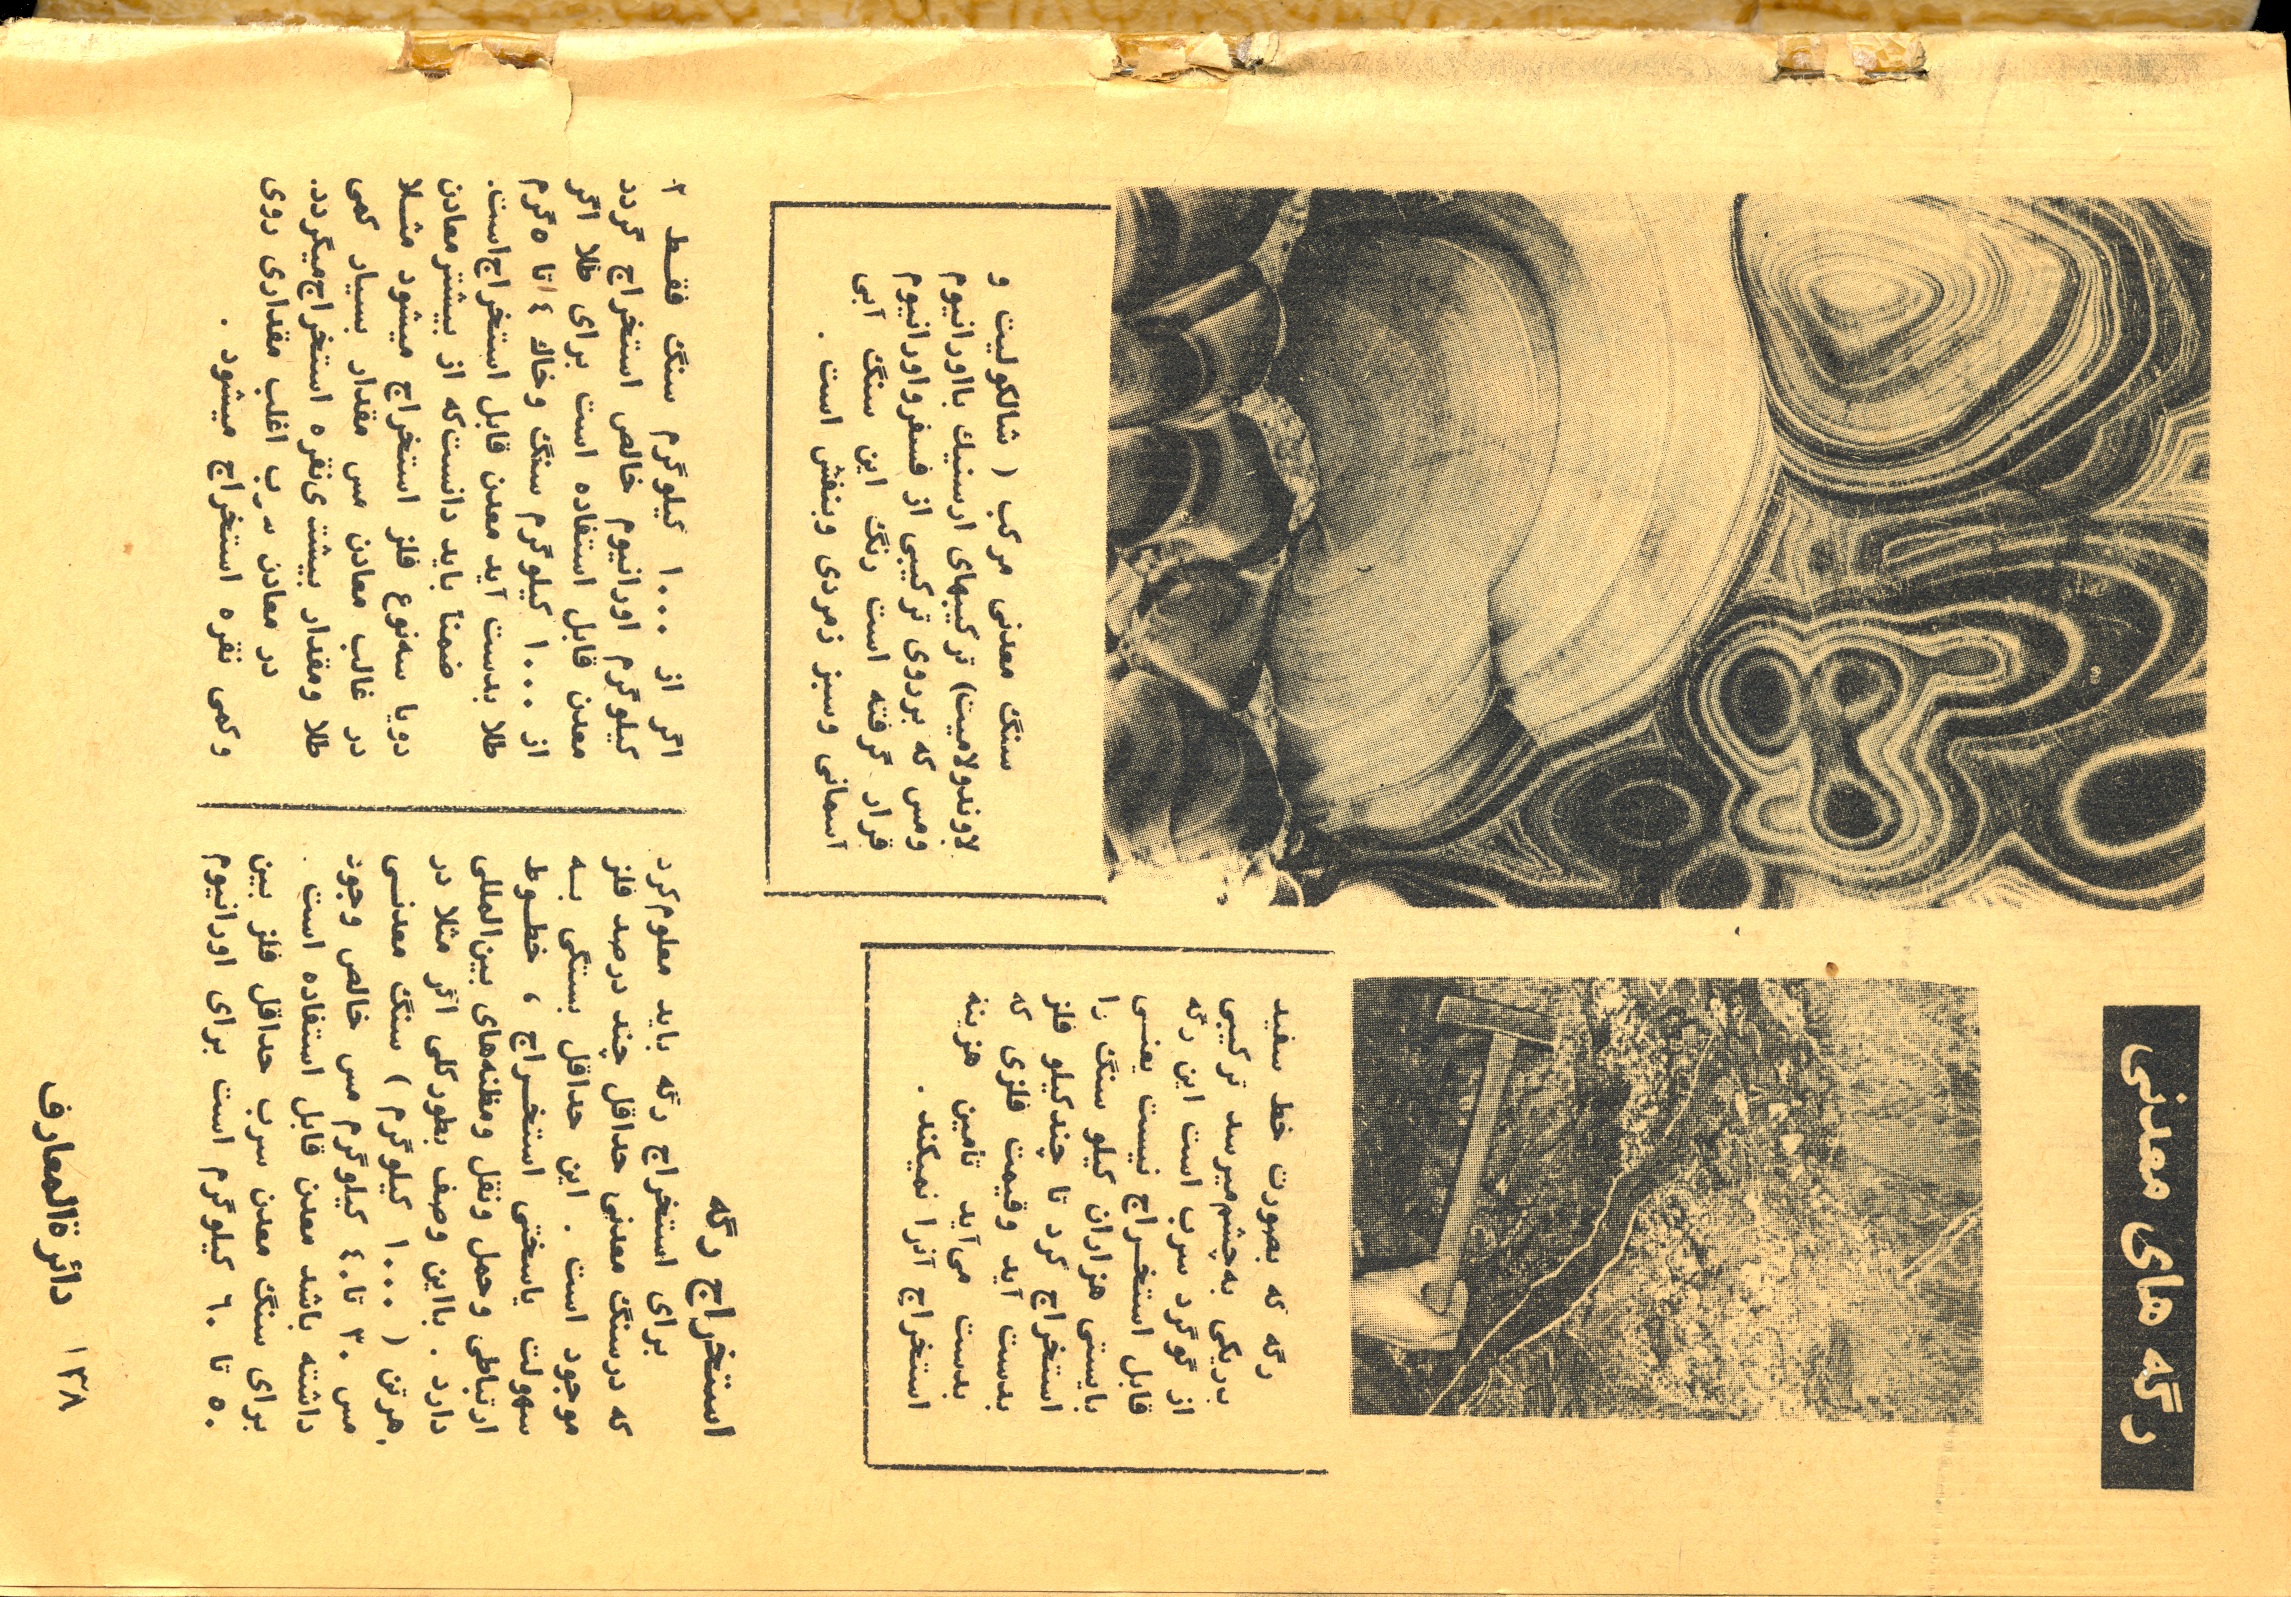 رگه های معدنی
رگه که بصورت خط سفید
باریکی به‌چشم‌میرسد ترکیبی
از گوگرد سرب است این رگه
قابل استخـراج نیست یعنـی
بایستی هزاران کیلو سنگ را
استخراج کرد تا چندکیلو فلز
بدست آید وقیمت فلزی که
بدست می‌آید تأمین هزینه
استخراج آنرا نمیکند .
سنگ معدنی مرکب ( شالکولیت و
لاوندولامیت) ترکیبهای ارسنیك بااورانیوم
ومس که برروی ترکیبی از فسفرواورانیوم
قرار گرفته است رنگ این سنگ آبی
آسمانی وسبز زمردی وبنفش است .
استخراج رگه
برای استخراج رگه باید معلوم‌کرد
که درسنگ معدنی حداقل چند درصد فلز
موجود است . این حداقل بستگی بـه
سهولت یاسختی استخـراج ، خطـوط
ارتباطی وحمل ونقل ومظنه‌های بین‌المللی
دارد . بااین وصف بطورکلی اگر مثلا در
هرتن ( ۱۰۰۰ کیلوگرم ) سنگ معدنـی
مس ۳۰ تا ٤۰ کیلوگرم مس خالص وجود
داشته باشد معدن قابل استفاده است .
برای سنگ معدن سرب حداقل فلز بین
۵۰ تا ٦۰ کیلوگرم است برای اورانیوم
اگر از ۱۰۰۰ کیلوگرم سنگ فقـط ۲
کیلوگرم اورانیوم خالص استخراج گردد
معدن قابل استفاده است برای طلا اگر
از ۱۰۰۰ کیلوگرم سنگ وخاك ٤ تا ۵ گرم
طلا بدست آید معدن قابل استخراج‌است.
ضمناً باید دانست‌که از بیشترمعادن
دویا سه‌نوع فلز استخراج میشود مثـلا
در غالب معادن مس مقدار بسیار کمی
طلا ومقدار بیشتری‌نقره استخراج‌میگردد.
در معادن سرب اغلب مقداری روی
وکمی نقره استخراج میشود .
۱۳۸ دائرةالمعارف